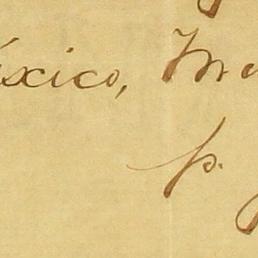 éxico, Ma
p.